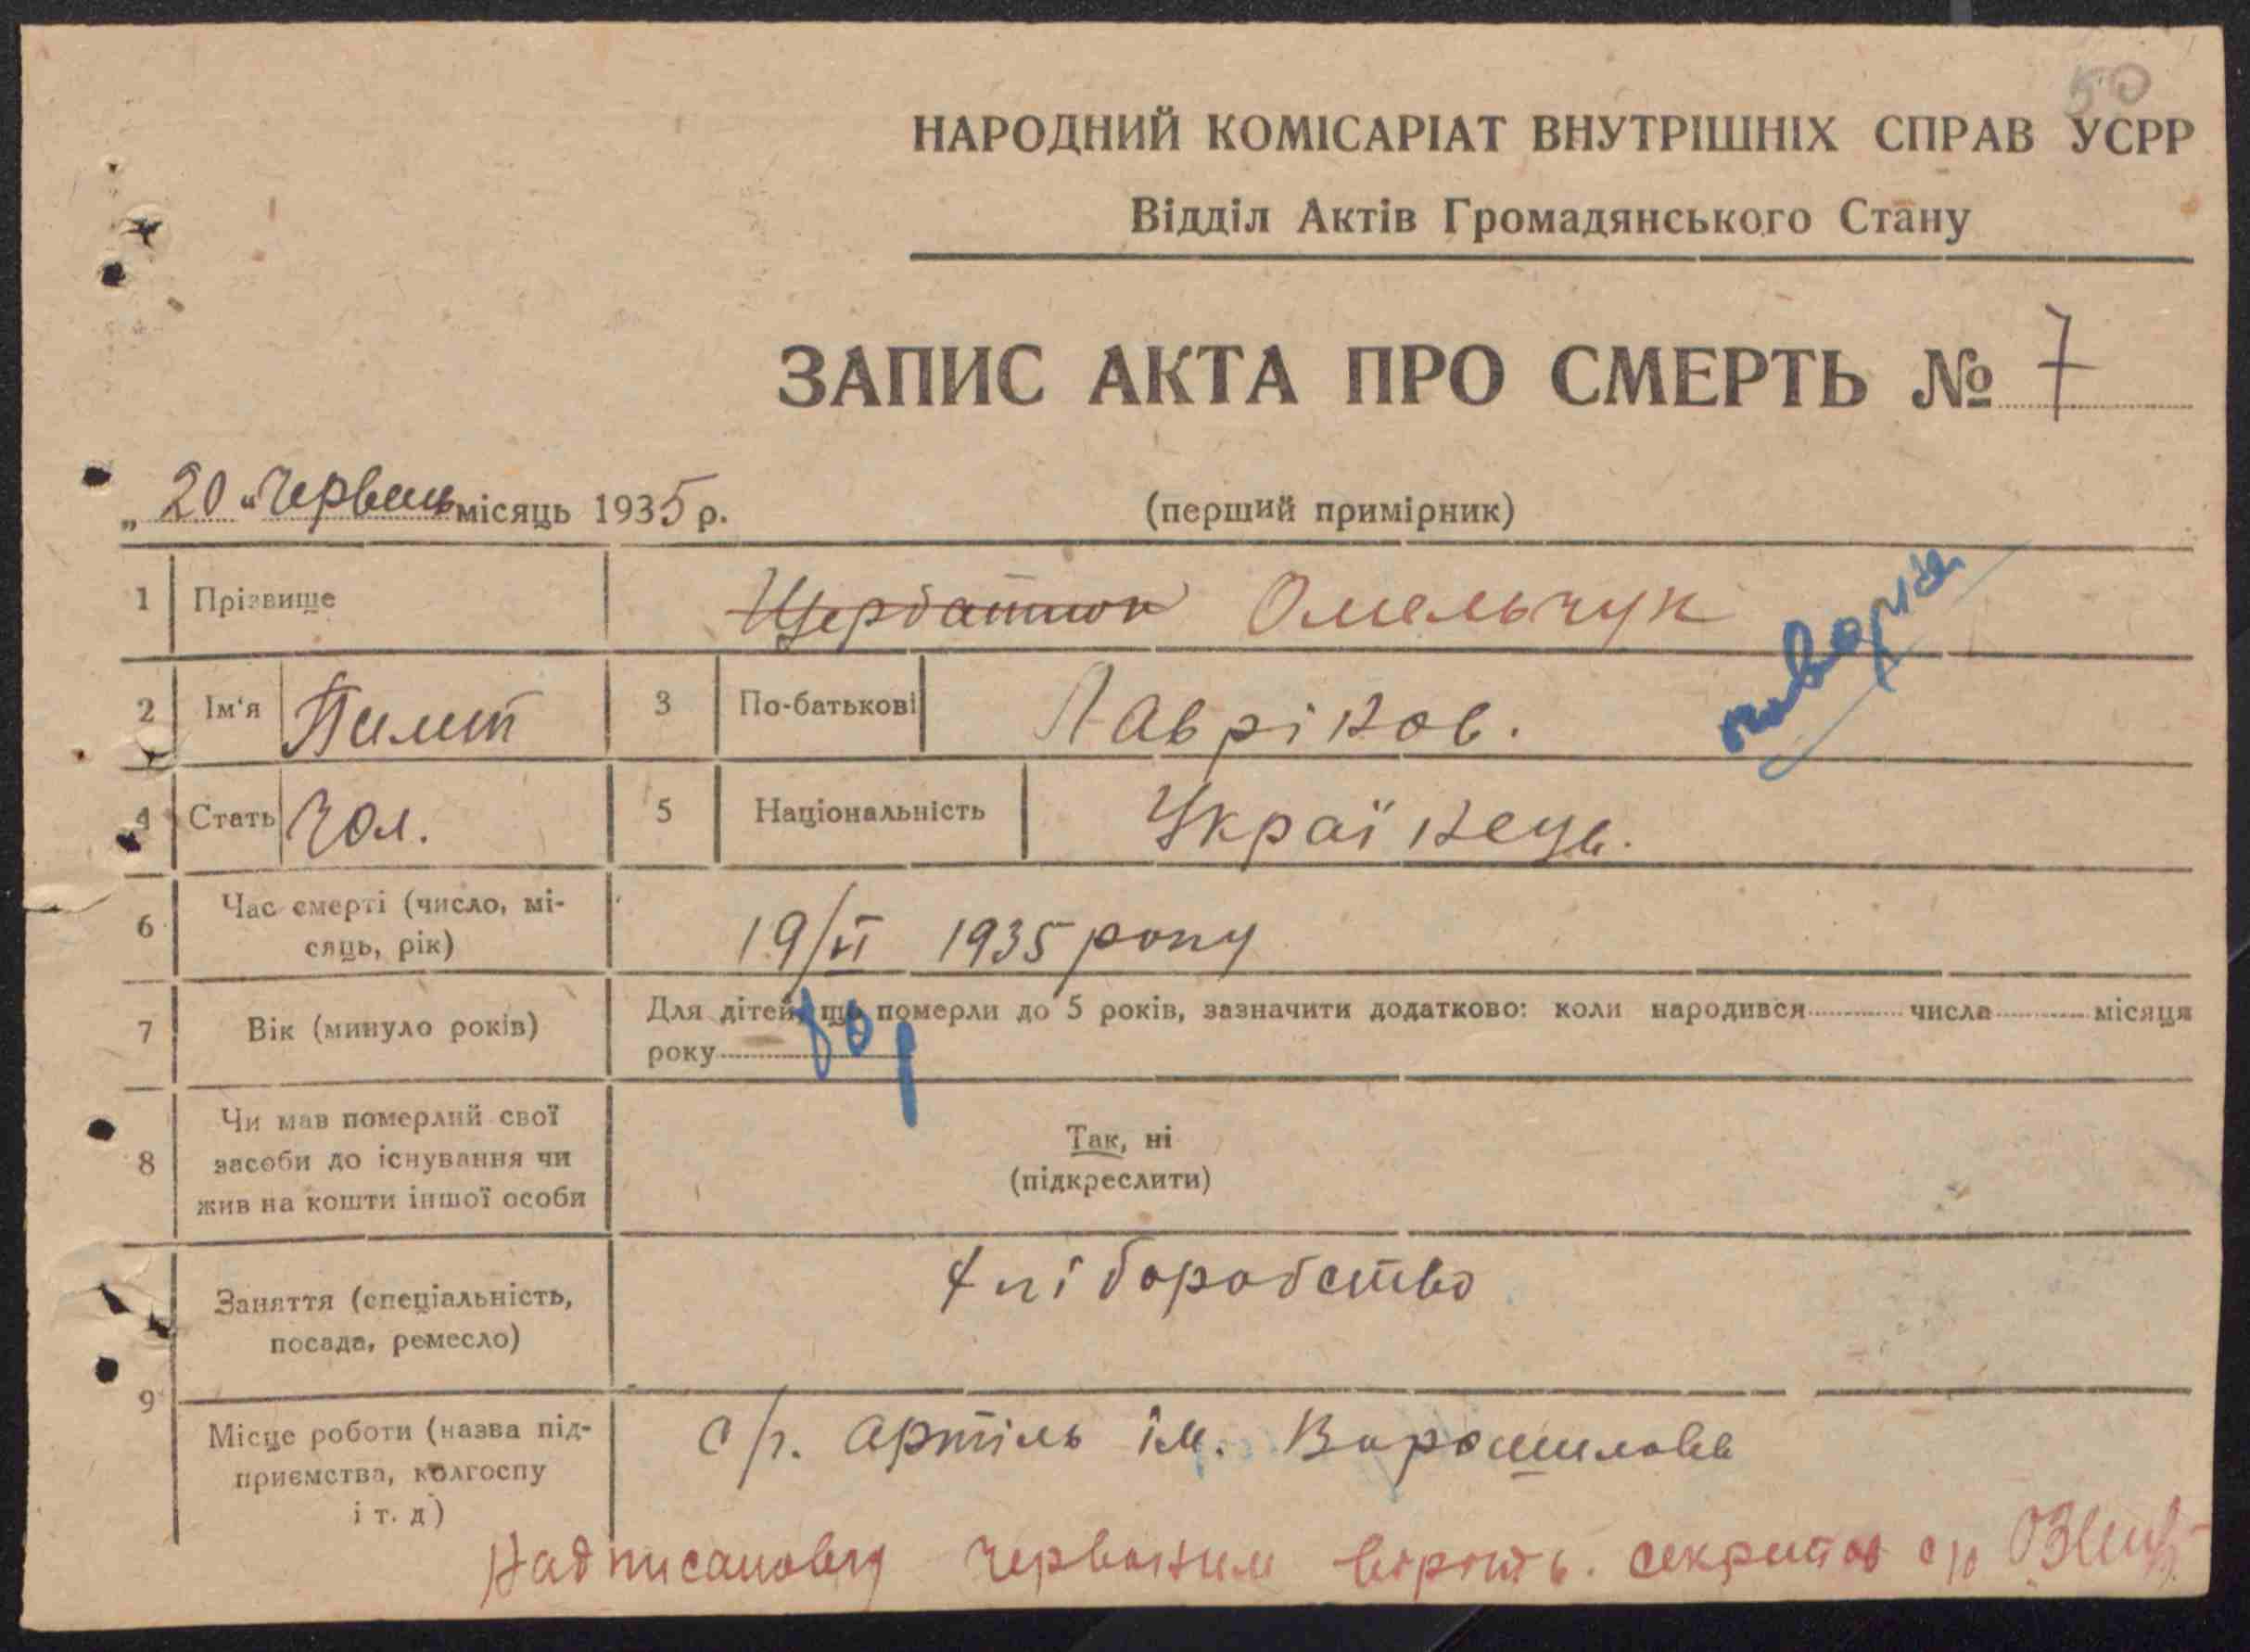 50
НАРОДНИЙ КОМІСАРІАТ ВНУТРІШНІХ СПРАВ УСРР
Відділ Актів Громадянського Стану
ЗАПИС АКТА ПРО СМЕРТЬ № 7
„ 20 “ Червень місяць 1935 р.
(перший примірник)
1 Прізвище Щербатюк Омельчук
2 Ім'я Пилип 3 По-батькові Лавріков.
4 Стать Чол. 5 Національність Українець.
6 Час смерті (число, мі-
сяць, рік) 19/VI 1935 року
7 Вік (минуло років) Для дітей, що померли до 5 років, зазначити додатково: коли народився числа місяця
року
8 Чи мав померлий свої
засоби до існування чи
жив на кошти іншої особи
Так, ні
(підкреслити)
Заняття (спеціальність,
посада, ремесло) хліборобство
9 Місце роботи (назва під-
приємства, колгоспу
і т. д) с/г. артіль ім. Ворошилова
Надписаному червоним вірить. секретар с/р